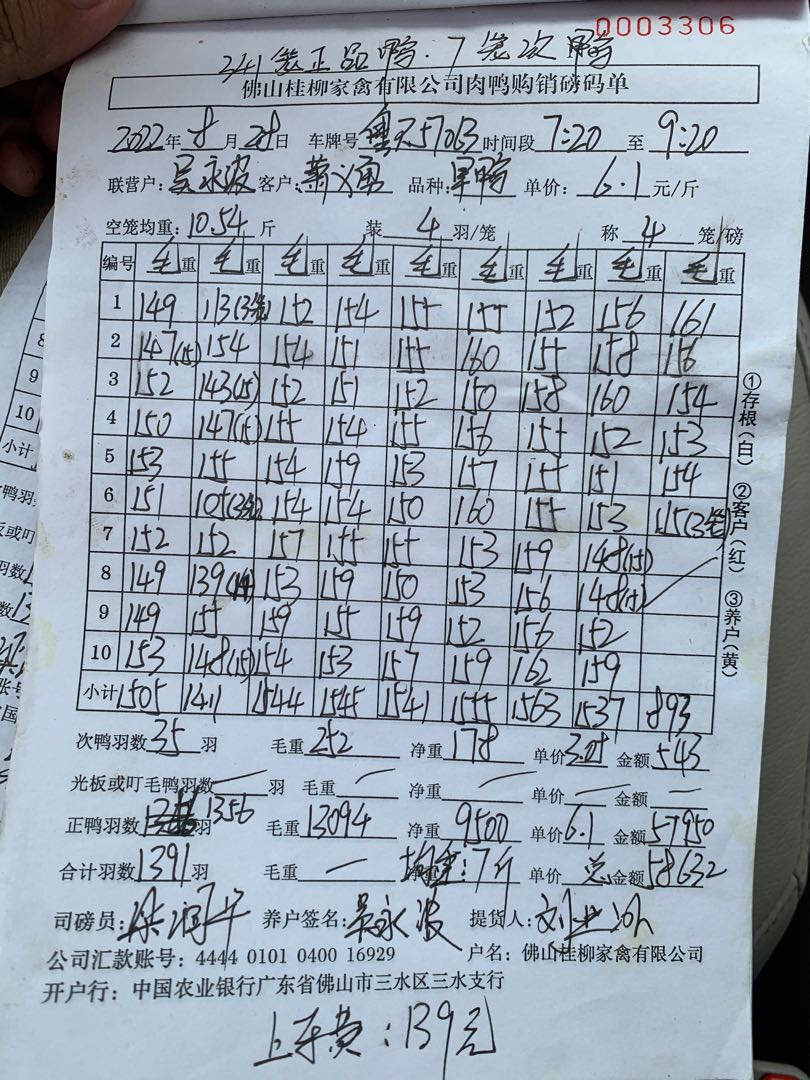 0003306
341笼正品鸭.7笼次鸭
佛山桂柳家禽有限公司肉鸭购销磅码单
2022年8月28日 车牌号 57063 时间段 7:20 至 9:20
联营户:吴永波 客户: 品种: 单价:6.1元/斤
空笼均重:10.54斤 装 4 羽/笼 称 4 笼/磅
编号 毛重 毛重 毛重 毛重 毛重 毛重 毛重 毛重 毛重
1 149 113(3笼) 152 154 155 155 152 156 161
2 147(15) 154 154 151 155 160 155 158 156
3 152 143(15) 152 151 152 150 158 160 154
4 150 147(15) 155 154 155 156 155 152 153
5 153 155 154 159 153 157 155 151 154
6 151 105(3笼) 154 154 150 160 155 153 115(3笼)
7 152 152 157 155 155 153 159 148(15)
8 149 139(14) 153 159 150 153 156 148(15)
9 149 155 159 155 159 152 156 152
10 153 148(15) 154 153 157 159 162 159
小计 1505 1411 1544 1545 1541 1555 1563 1537 893
次鸭羽数35羽 毛重252 净重178 单价3.05 金额543
光板或叮毛鸭羽数一羽 毛重一 净重一 单价一 金额一
正鸭羽数 1356羽 毛重13094 净重9500 单价6.1 金额57950
合计羽数1391羽 毛重一 均重:7斤 单价 总金额58632
司磅员: 养户签名:吴永波 提货人:
公司汇款账号:4444 0101 0400 16929 户名:佛山桂柳家禽有限公司
开户行:中国农业银行广东省佛山市三水区三水支行
上车费:139元
①存根(白) ②客户(红) ③养户(黄)
8
9
10
小计